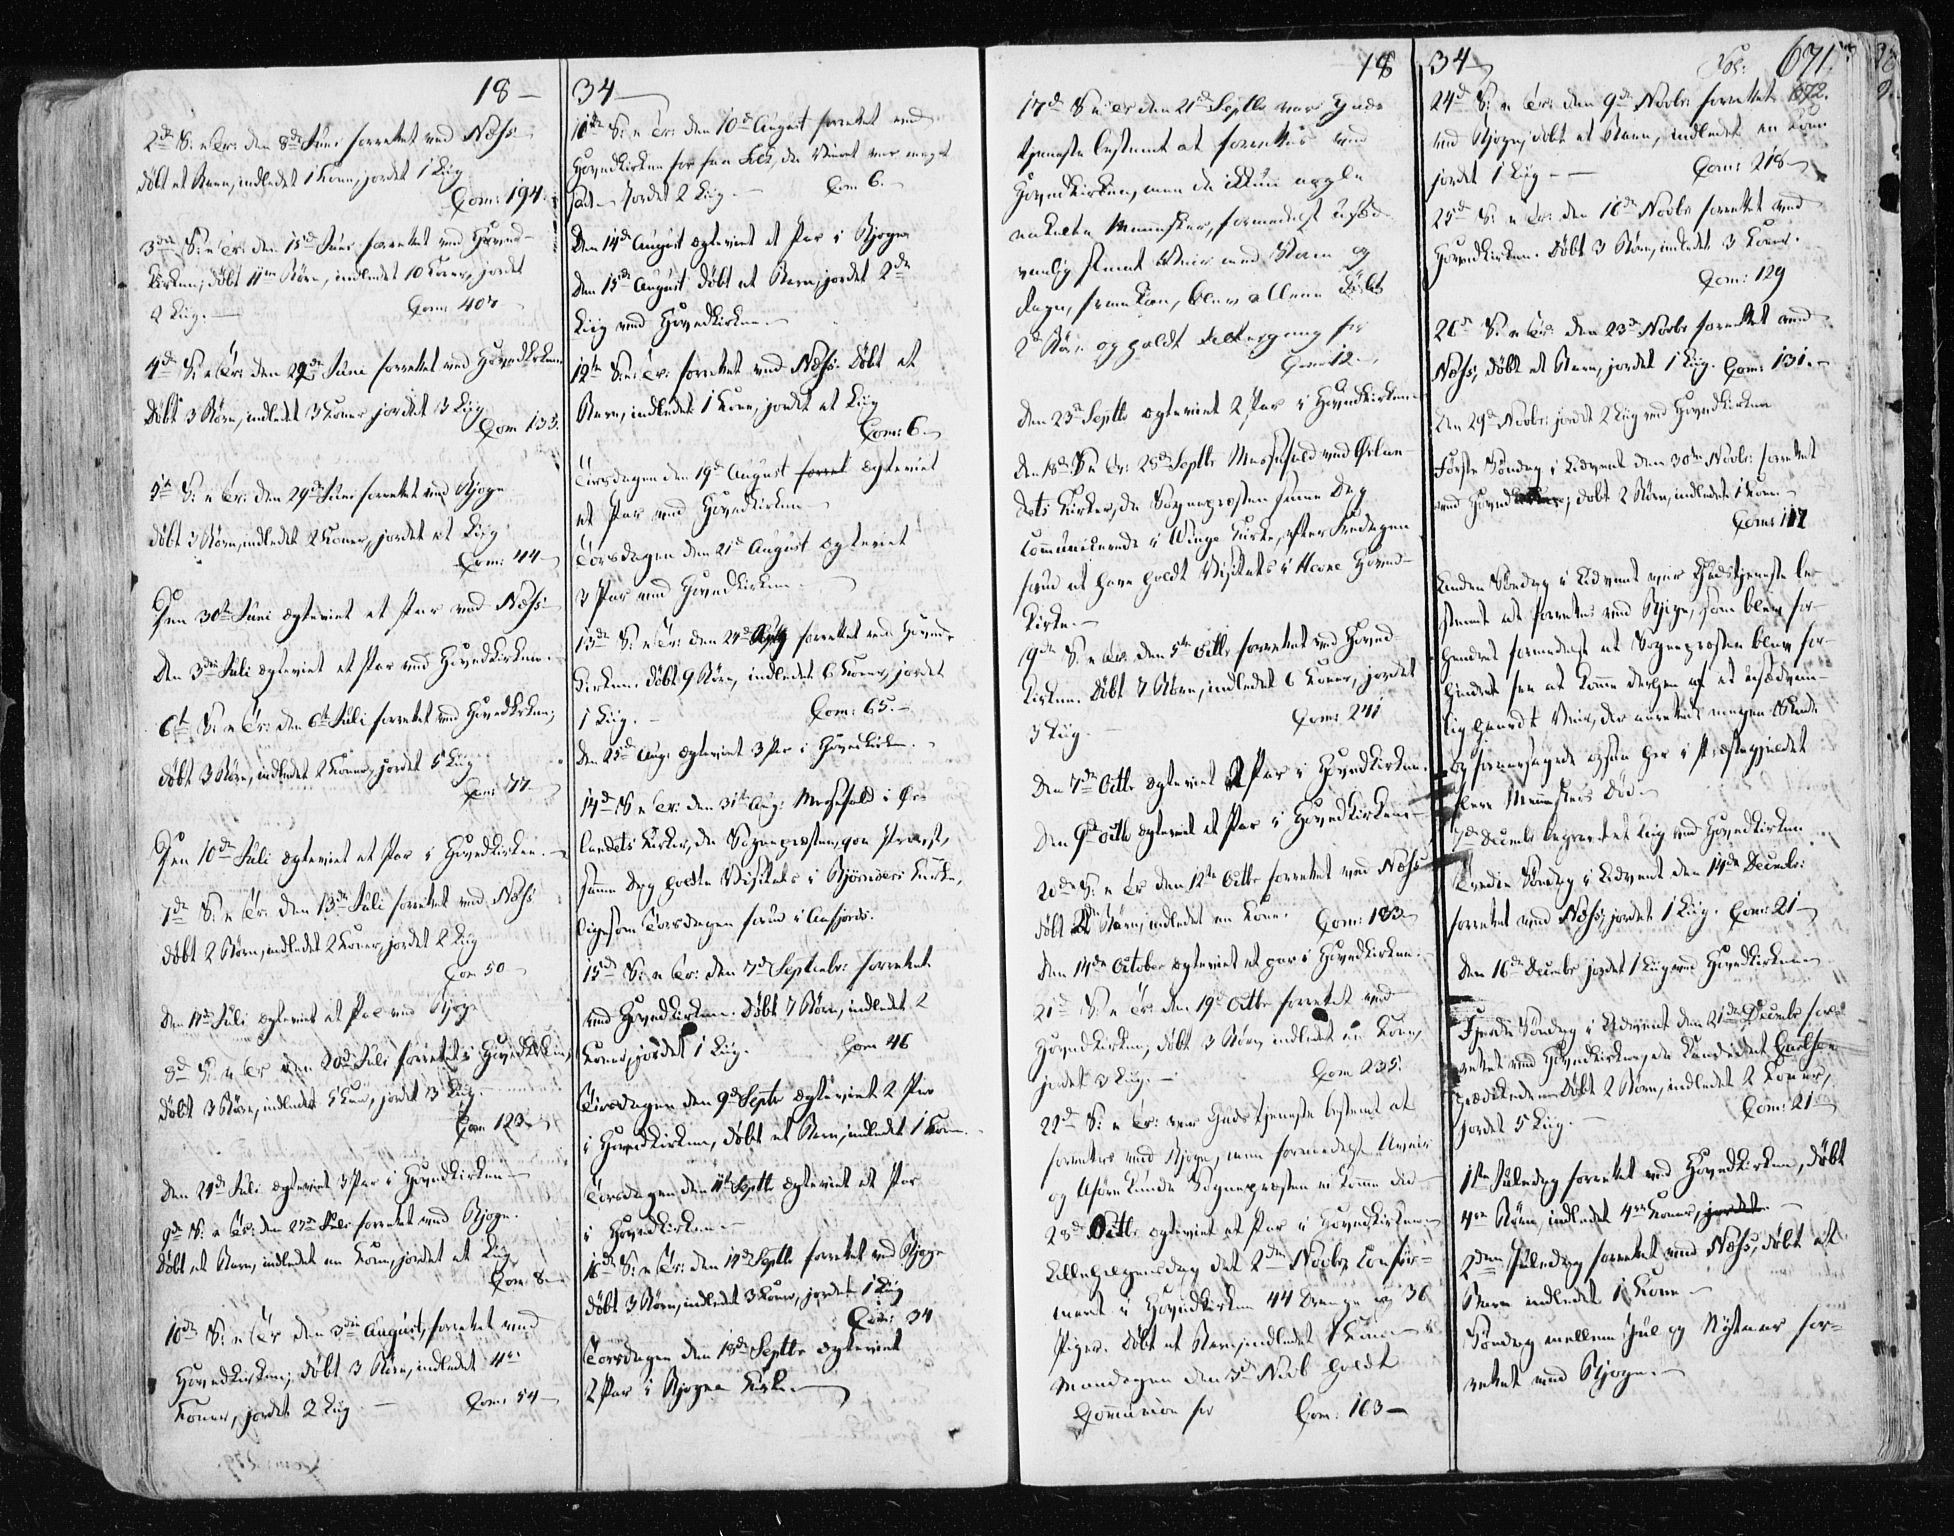 18 — 34
2de S: e Tr: den 8de Juni forrettet ved Næss
døbt et Barn, indledet 1 Kone, jordet 1 Liig
Com: 194.
3die S: e Tr: den 15de Juni forrettet ved Hoved-
kirken; døbt 11ve Børn, indledet 10 Koner, jordet
2 Liig. — Com: 407
4de S: e Tr: den 22de Juni forrettet ved Hovedkirken
døbt 3 Børn, indledet 3 Koner jordet 3 Liig
Com 133.
5te S: e Tr: den 29de Juni forrettet ved Bjogn
døbt 3 Børn, indledet 2 Koner, jordet et Liig
Com: 44
Den 30te Juni ægteviet et Par ved Næss
Den 3die Juli ægteviet et Par ved Hovedkirken.
6te S: e Tr: den 6te Juli forrettet ved Hovedkirken;
døbt 3 Børn, indledet 2 Koner, jordet 5 Liig
Com: 77
Den 10de Juli ægteviet et Par i Hovedkirken.
7de S: e Tr: den 13de Juli forrettet ved Næss
døbt 2 Børn, indledet 2 Koner, jordet 2 Liig
Com 50
Den 17de Juli ægteviet et Par ved Bjogn
8de S: e Tr den 20de Juli forrettet i Hovedkirken
døbt 3 Børn, indledet 5 Koner, jordet 3 Liig.
Com 123
Den 24de Juli ægteviet 3 Par i Hovedkirken
9de S: e Tr: den 27de Juli forrettet ved Bjogn.
døbt et Barn, indledet en Kone, jordet et Liig
Com: 8
10de S: e Tr den 3die August, forrettet ved
Hovedkirken; døbt 3 Børn, indledet 4re
Koner, jordet 2 Liig. — Com: 54
11te S: e Tr: den 10de August forrettet ved
Hovedkirken for faa Folk, da Veiret var meget
jordet 2 Liig. — Com 6.
Den 14de August ægteviet et Par i Bjogn
Den 15de August døbt et Barn, jordet 2de
Liig ved Hovedkirken.
12te S: e: Tr: forrettet ved Næss. Døbt et
Barn, indledet 1 Kone, jordet et Liig
Com: 6.
Tirsdagen den 19de August forret ægteviet
et Par ved Hovedkirken
Torsdagen den 21de August ægteviet
3 Par ved Hovedkirken.
13de S: e Tr: den 24de forrettet ved Hoved-
kirken. Døbt 9 Børn, indledet 6 Koner, jordet
1 Liig. — Com: 65.
Den 25de Aug: ægteviet 3 Par i Hovedkirken.
14de S: e Tr: den 31te Aug: Messefald i Ør-
landets Kirker, da Sognepræsten, qva Provst,
samme Dag holdte Visitats i Bjørnøers Kirke,
ligesom Torsdagen forud i Aafjord.
15de S: e Tr: den 7de Septembr: forrettet
ved Hovedkirken. Døbt 7 Børn, indledet 2
Koner, jordet 1 Liig. Com 46
Tirsdagen den 9de Septr ægteviet 2 Par
i Hovedkirken, døbt et Barn, indledet 1 Kone.
Torsdagen den 11te Septbr ægteviet et Par
i Hovedkirken
16de S: e Tr: den 14de Septbr forrettet ved Bjogn
døbt 3 Børn, indledet 3 Koner, jordet 1 Liig
Com: 34
Torsdagen den 18de Septbr ægteviet
2 Par i Bjogns Kirke.
18 34 Fol: 671.
17de S: e Tr den 21de Septbr var Guds
tjeneste bestemt at forrettes ved
Hovedkirken, men da ikkun nogle
enkelte Mennesker, formedelst usæd-
vanlig slemt Veir med Storm og
Regn, fremkom, blev allene døbt
2de Børn og holdt Altergang for
Com: 12.
Den 23de Septbr ægteviet 2 Par i Hovedkirken.
Den 18de S: e Tr: 28de Septbr Messefald ved Ørlan-
dets Kirker, da Sognepræsten samme Dag
communicerede i Winge Kirke, efter Fredagen
forud at have holdt Visitats i Hevne Hoved-
kirke.
19de S: e Tr: den 5te Octbr forrettet ved Hoved-
kirken. Døbt 7 Børn, indledet 6 Koner, jordet
3 Liig. — Com: 241
Den 7de Octbr ægteviet 2 Par i Hovedkirken.
Den 9de Octbr ægteviet et Par i Hovedkirken
20de S: e Tr den 12te Octbr forrettet ved Næss
døbt 2de Børn, indledet en Kone. Com: 183
Den 14de October ægteviet et par i Hovedkirken.
21de S: e Tr: den 19de Octbr forrettet ved
Hovedkirken; døbt 3 Børn, indledet en Kone,
jordet 3 Liig. — Com 235.
22de S: e Tr: var Gudstjeneste bestemt at
forrettes ved Bjogn, men formedelst Uveir
og Uføre kunde Sognepræsten ei komme did
28de Octbr ægteviet et Par i Hovedkirken
Allehelgensdag det 2den Novbr, Confir-
meret i Hovedkirken 44 Drenge og 36
Piger. Døbt et Barn, indledet 1 Kone
Mandagen den 3die Novb holdt
Communion for Com: 163 —
24de S: e Tr: den 9de Novbr: forrettet 1872.
ved Bjogn, døbt et Barn, indledet en Kone
jordet 1 Liig — — Com: 218
25de S: e Tr: den 16de Novbr forrettet ved
Hovedkirken. Døbt 3 Børn, indledet 3 Koner.
Com: 129
26de S: e Tr: den 23de Novbr forrettet ved
Næss, døbt et Barn, jordet 1 Liig. Com: 131.
Den 29de Novbr: jordet 2 Liig ved Hovedkirken
Første Søndag i Advent den 30te Novbr: forrettet
ved Hovedkirken; døbt 2 Børn, indledet 1 Kone
Com: 117
Anden Søndag i Advent var Gudstjeneste be-
stemt at forrettes ved Bjogn, som blev for-
hindret formedelst at Sognepræsten blev for-
hindret fra at komme derhen af et usædvan-
lig haardt Veir, der anrettede megen Skade
og foraarsagede ogsaa her i Præstegjeldet
flere Menneskers Død.
7de Decembr begravet et Liig ved Hovedkirken
Tredie Søndag i Advent den 14de Decembr:
forrettet ved Næss; jordet 1 Liig. Com: 21
Den 16de Decembr jordet 1 Liig ved Hovedkirken
Fjerde Søndag i Advent den 21de Decembr for-
rettet ved Hovedkirken, da Kandidat Carlsen
prædikede. Døbt 2 Børn, indledet 2 Koner,
jordet 5 Liig. — Com: 21
1ste Juledag forrettet ved Hovedkirken, døbt
4re Børn, indledet 4re Koner, jordet
2den Juledag forrettet ved Næss, døbt et
Barn indledet 1 Kone
Søndag mellem Juul og Nytaar for-
rettet ved Bjogn.